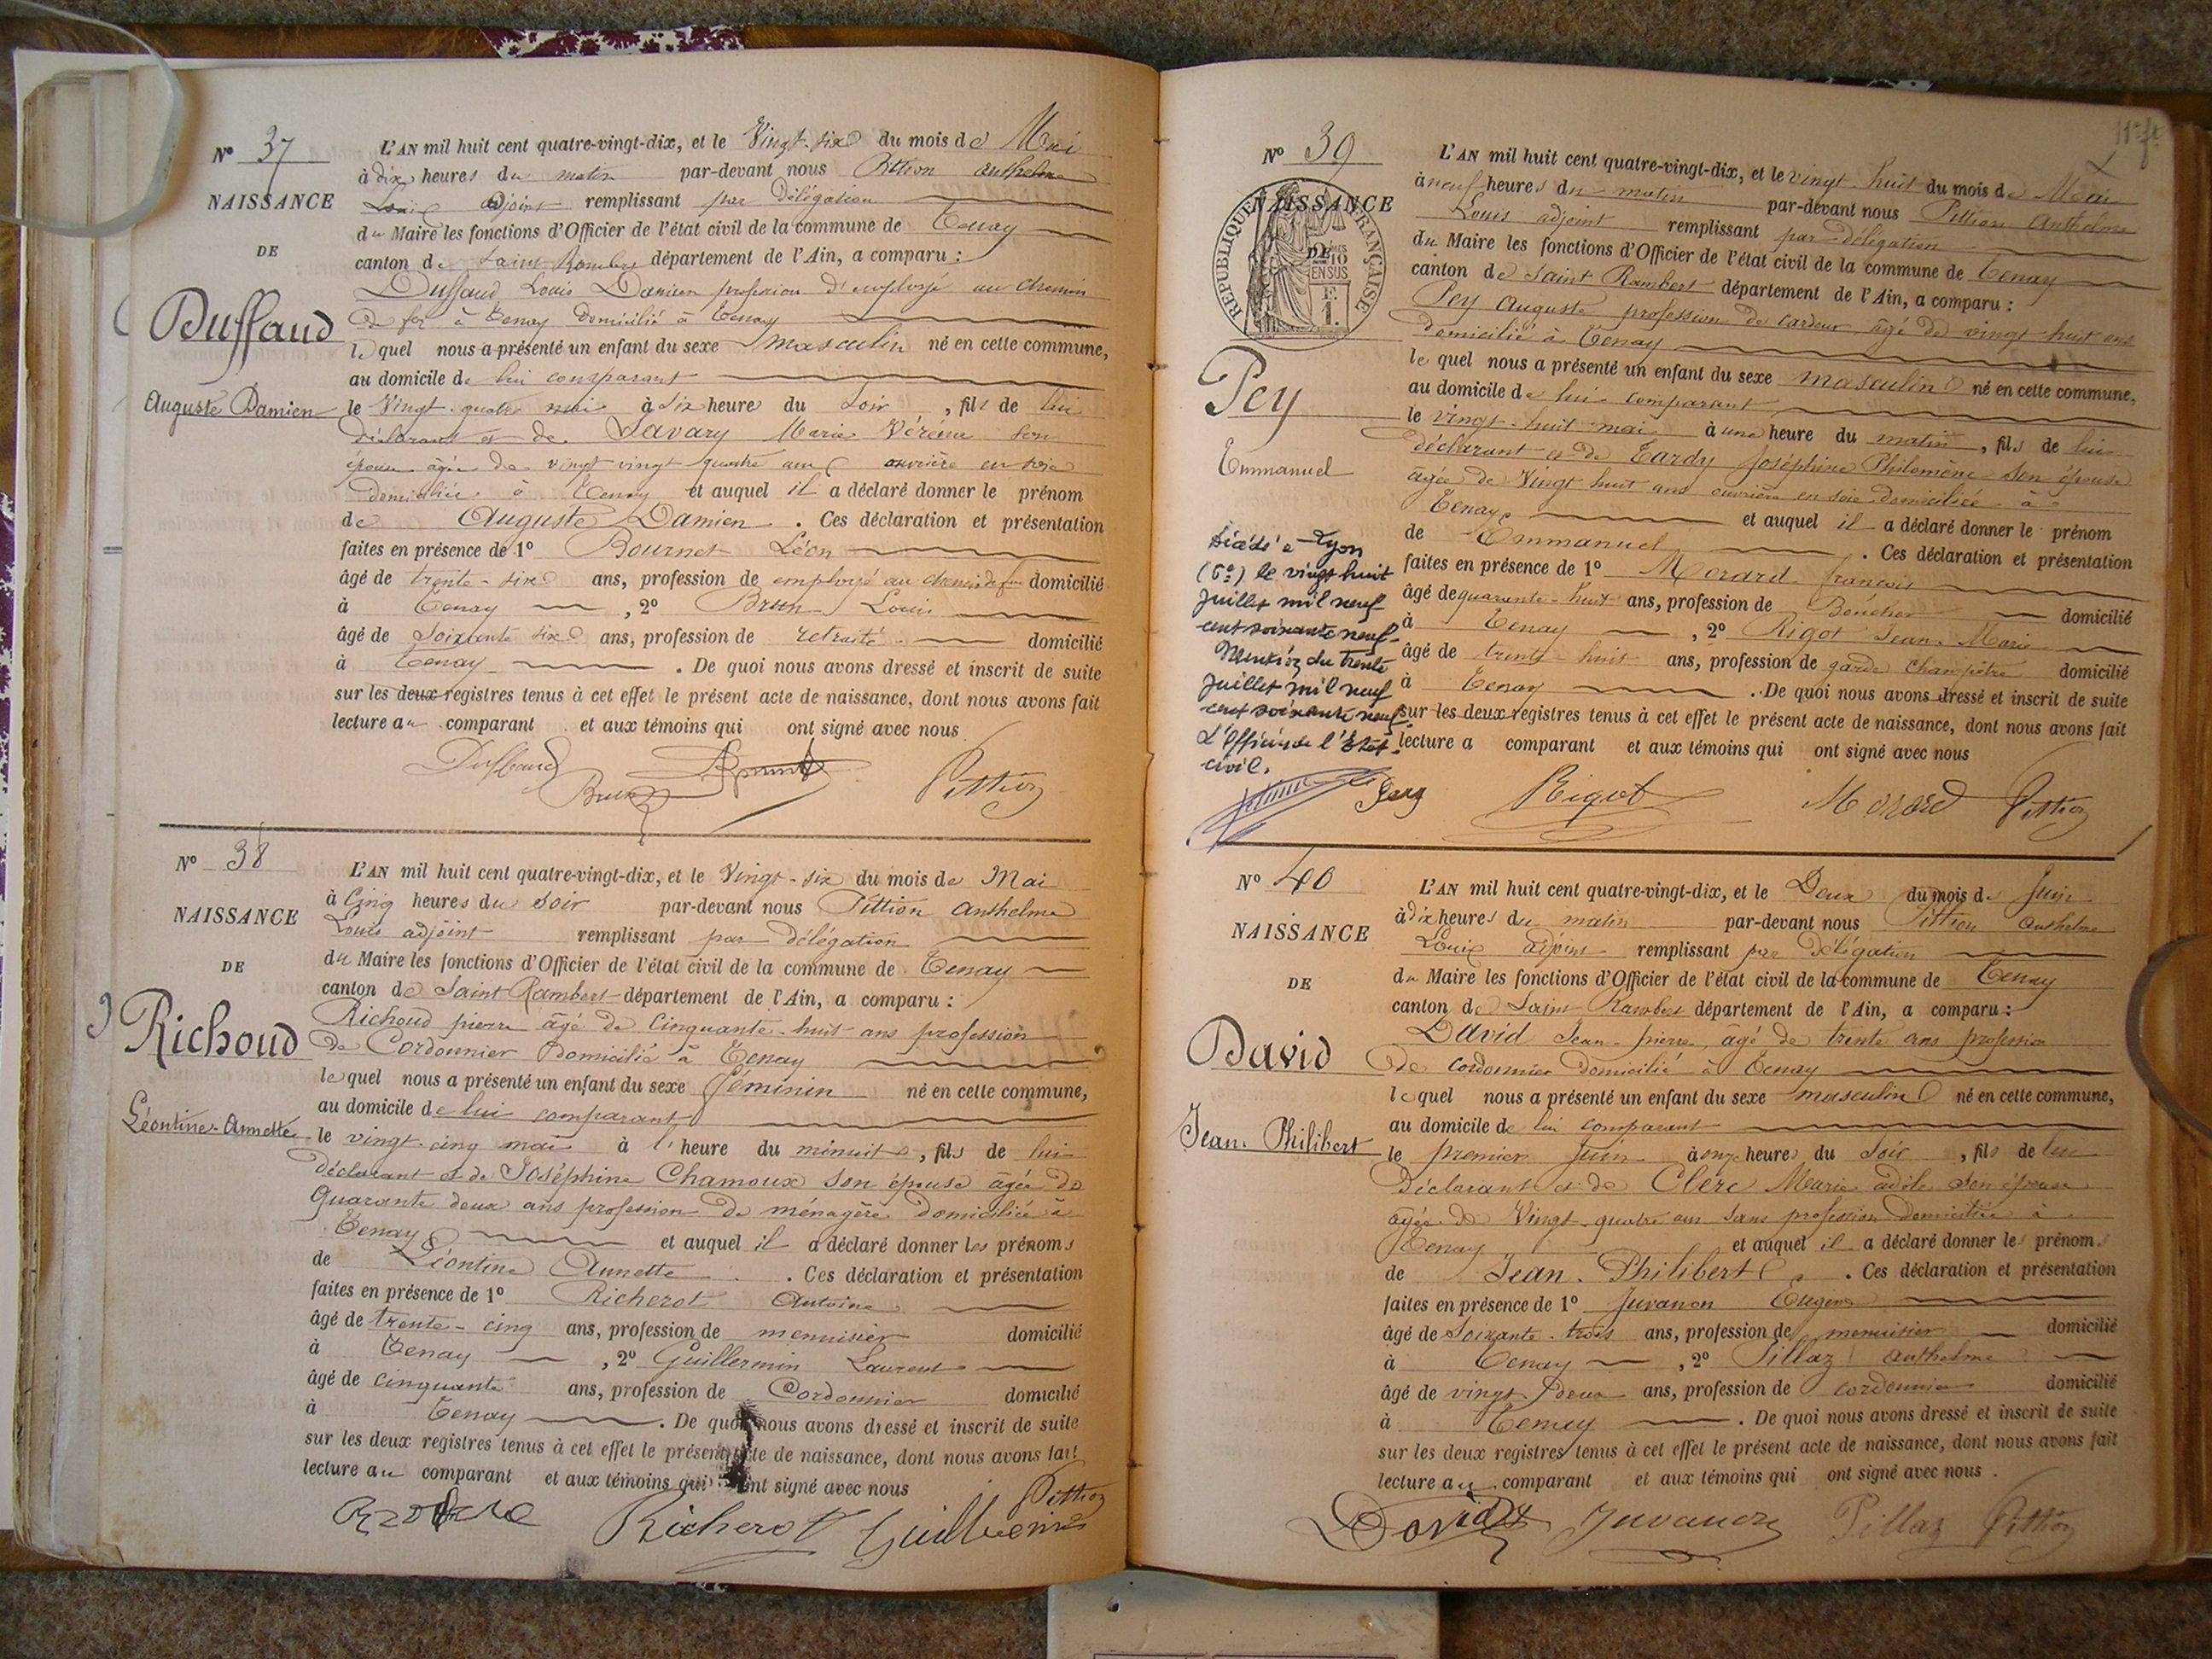 Nº 37
NAISSANCE
DE
Duffaud
Auguste Damien
L'AN mil huit cent quatre-vingt-dix, et le Vingt-six du mois de Mai
à dix heures du matin par-devant nous Pittion Anthelme
Louis adjoint remplissant par Délégation
du Maire les fonctions d'Officier de l'état civil de la commune de Tenay
canton de Saint Rambert département de l'Ain, a comparu :
Duffaud Louis Damien profession d'employé au chemin
de fer à Tenay domicilié à Tenay
lequel nous a présenté un enfant du sexe masculin né en cette commune,
au domicile de lui comparant
le Vingt-quatre mai à six heure du Soir, fils de lui
déclarant et de Savary Marie son
épouse âgée de vingt vingt quatre ans ouvrière en soie
domiciliée à Tenay et auquel il a déclaré donner le prénom
de Auguste Damien. Ces déclaration et présentation
faites en présence de 1º Bournet Léon
âgé de trente-six ans, profession de employé au chemin de fer domicilié
à Tenay, 2º Brun Louis
âgé de Soixante six ans, profession de retraité domicilié
à Tenay. De quoi nous avons dressé et inscrit de suite
sur les deux registres tenus à cet effet le présent acte de naissance, dont nous avons fait
lecture au comparant et aux témoins qui ont signé avec nous
Duffaud
Brun
Pittion
Nº 38
NAISSANCE
DE
Richoud
Léontine-Annette
L'AN mil huit cent quatre-vingt-dix, et le Vingt-six du mois de Mai
à Cinq heures du Soir par-devant nous Pittion Anthelme
Louis adjoint remplissant par délégation
du Maire les fonctions d'Officier de l'état civil de la commune de Tenay
canton de Saint Rambert département de l'Ain, a comparu :
Richoud pierre âgé de Cinquante-huit ans profession
de Cordonnier Domicilié à Tenay
lequel nous a présenté un enfant du sexe féminin né en cette commune,
au domicile de lui comparant
le vingt-cinq mai à l'heure du minuit, fils de lui
déclarant et de Joséphine Chamoux son épouse âgée de
Quarante deux ans profession de ménagère domiciliée à
Tenay et auquel il a déclaré donner les prénoms
de Léontine Annette. Ces déclaration et présentation
faites en présence de 1º Richerot Antoine
âgé de trente-cinq ans, profession de menuisier domicilié
à Tenay, 2º Guillermin Laurent
âgé de cinquante ans, profession de Cordonnier domicilié
à Tenay. De quoi nous avons dressé et inscrit de suite
sur les deux registres tenus à cet effet le présent acte de naissance, dont nous avons fait
lecture au comparant et aux témoins qui ont signé avec nous
Pittion
Richerot Guillermin
Nº 39
NAISSANCE
DE
RÉPUBLIQUE FRANÇAISE
Pey
Emmanuel
L'AN mil huit cent quatre-vingt-dix, et le vingt-huit du mois de Mai
à neuf heures du matin par-devant nous Pittion Anthelme
Louis adjoint remplissant par délégation
du Maire les fonctions d'Officier de l'état civil de la commune de Tenay
canton de Saint Rambert département de l'Ain, a comparu :
Pey Auguste profession de cardeur âgé de vingt huit ans
domicilié à Tenay
lequel nous a présenté un enfant du sexe masculin né en cette commune,
au domicile de lui comparant
le vingt-huit mai à une heure du matin, fils de lui
déclarant et de Tardy Joséphine Philomène son épouse
âgée de Vingt huit ans ouvrière en soie domiciliée à
Tenay et auquel il a déclaré donner le prénom
de Emmanuel. Ces déclaration et présentation
faites en présence de 1º Morard françois
âgé de quarante-huit ans, profession de domicilié
à Tenay, 2º Rigot Jean-Marie
âgé de trente-huit ans, profession de garde champêtre domicilié
à Tenay. De quoi nous avons dressé et inscrit de suite
sur les deux registres tenus à cet effet le présent acte de naissance, dont nous avons fait
lecture a comparant et aux témoins qui ont signé avec nous
Décédé à Lyon
(6e) le vingt huit
juillet mil neuf
cent soixante neuf.
Mention du trente
juillet mil neuf
cent soixante neuf.
L'Officier de l'Etat
civil.
Pey Rigot Morard Pittion
Nº 40
NAISSANCE
DE
David
Jean-Philibert
L'AN mil huit cent quatre-vingt-dix, et le Deux du mois de Juin
à dix heures du matin par-devant nous Pittion Anthelme
Louis adjoint remplissant par Délégation
du Maire les fonctions d'Officier de l'état civil de la commune de Tenay
canton de Saint Rambert département de l'Ain, a comparu :
David Jean-pierre, âgé de trente ans profession
de cordonnier Domicilié à Tenay
lequel nous a présenté un enfant du sexe masculin né en cette commune,
au domicile de lui comparant
le premier Juin à onze heures du Soir, fils de lui
Déclarant et de Clerc Marie adèle son épouse
âgée de Vingt-quatre ans sans profession Domiciliée à
Tenay et auquel il a déclaré donner les prénoms
de Jean-Philibert. Ces déclaration et présentation
faites en présence de 1º Juvanon Eugène
âgé de Soixante-trois ans, profession de menuisier domicilié
à Tenay, 2º Pillaz Anthelme
âgé de vingt deux ans, profession de cordonnier domicilié
à Tenay. De quoi nous avons dressé et inscrit de suite
sur les deux registres tenus à cet effet le présent acte de naissance, dont nous avons fait
lecture au comparant et aux témoins qui ont signé avec nous.
David Juvanon Pillaz Pittion